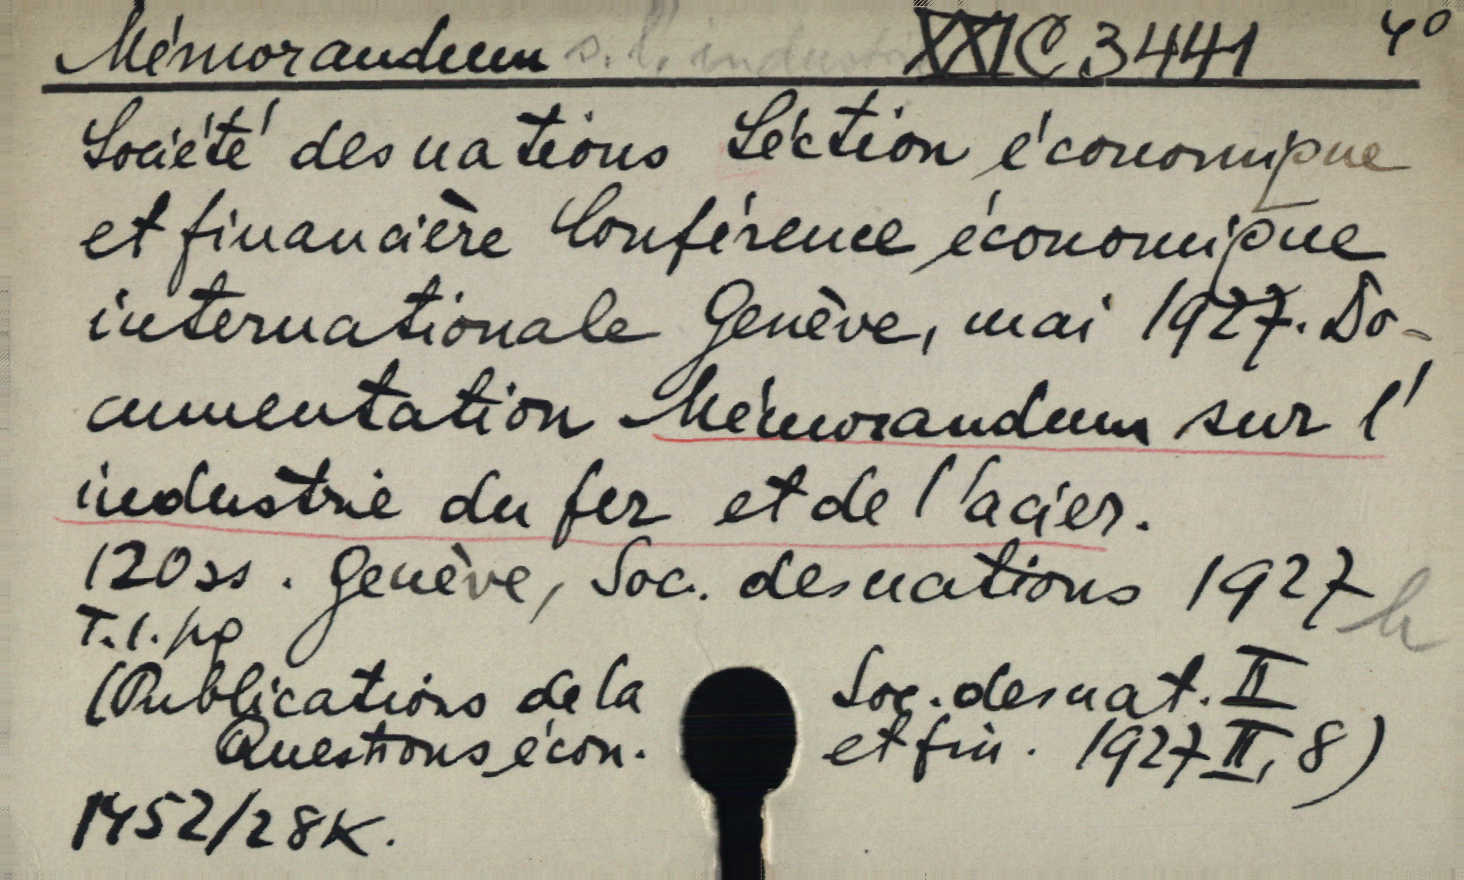 Mémorandum s. l. industrie XXIC 3441 4°
Société des nations Séction économique
et financière Conférence économique
internationale Genève, mai 1927. Do-
cumentation Mémorandum sur l'
industrie du fer et de l'acier.
120 ss. Genève, Soc. des nations 1927
(Publications de la Soc. des nat. II
Questions écon. et fin. 1927 II, 8)
1452/28K.